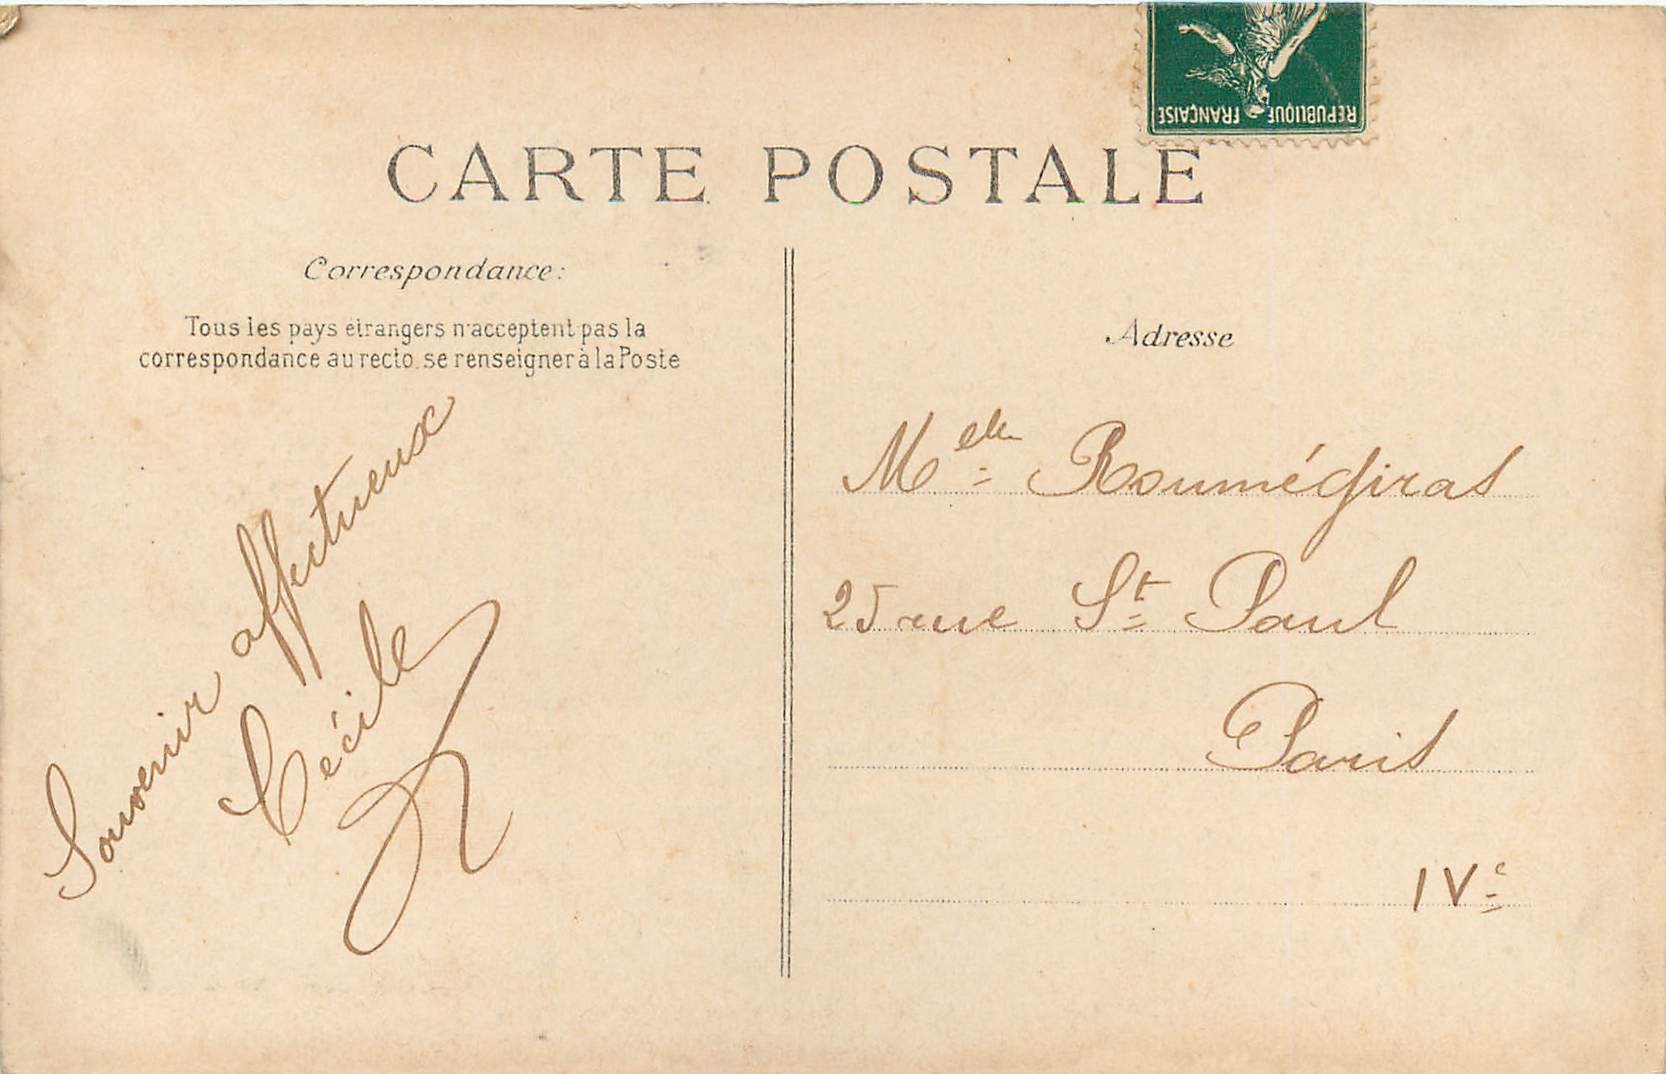 REPUBLIQUE FRANÇAISE
CARTE POSTALE
Correspondance:
Tous les pays étrangers n'acceptent pas la
correspondance au recto. se renseigner à la Poste
Souvenir affectueux
Cécile
Adresse
Melle Roumégiras
25 rue St Paul
Paris
IVe